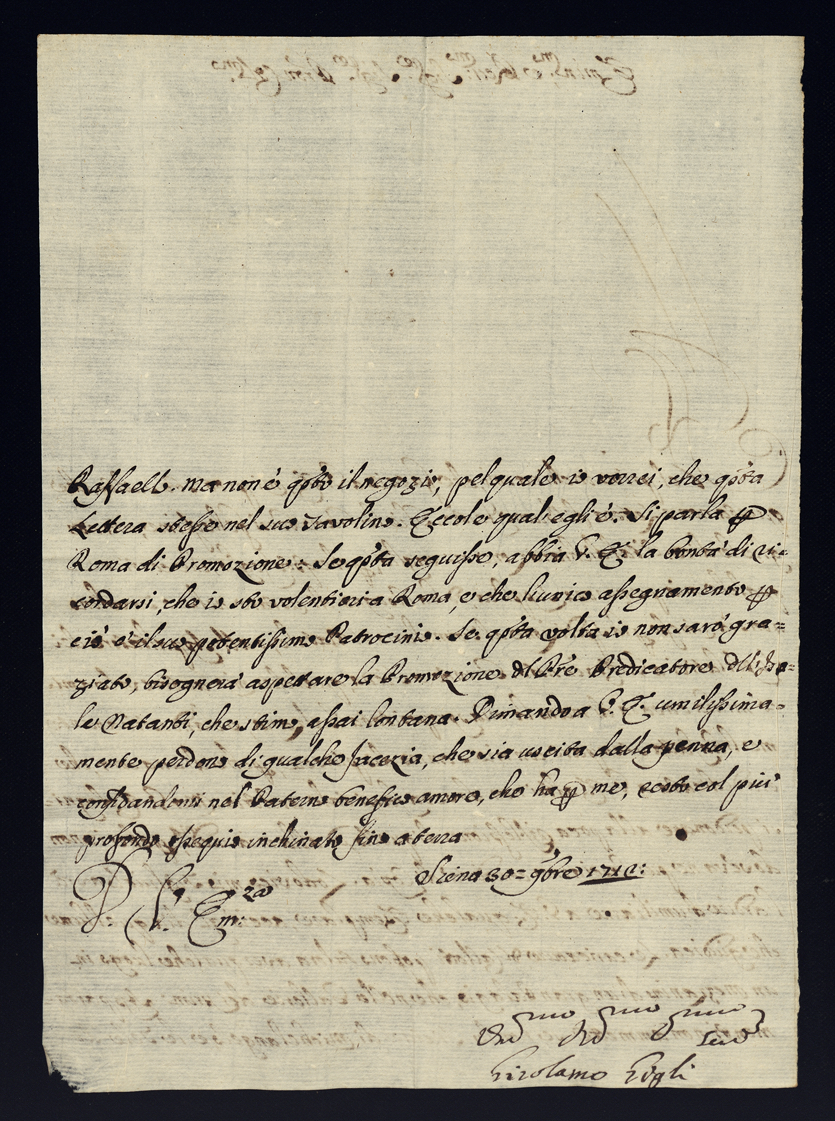 Raffaello. Ma non è q̄sto il negozio, pel quale io vorrei, che q̄sta
Lettera stesse nel suo Tavolino. Eccole qual egli è. Si parla p̱
Roma di Promozione: Se q̄sta seguisse, abbia V. E. la bontà di ri=
cordarsi, che io sto volentieri a Roma, e che l'unico assegnamento p̱
ciò è il suo potentissimo Patrocinio. Se q̄sta volta io non sarò gra=
ziato, bisognerà aspettare la Promozione del Pr̄e Predicatore
le Natanti, che stimo assai lontana. Dimando a V. E. umilissima=
mente perdono di qualche facezia, che sia uscita dalla penna, e
confidandomi nel Paterno benefico amore, che ha p̱ me, resto col più
profondo ossequio inchinato fino a terra
Siena 30= 9bre 1712:
D V. Em:za
Um̄o Servo
Girolamo Gigli